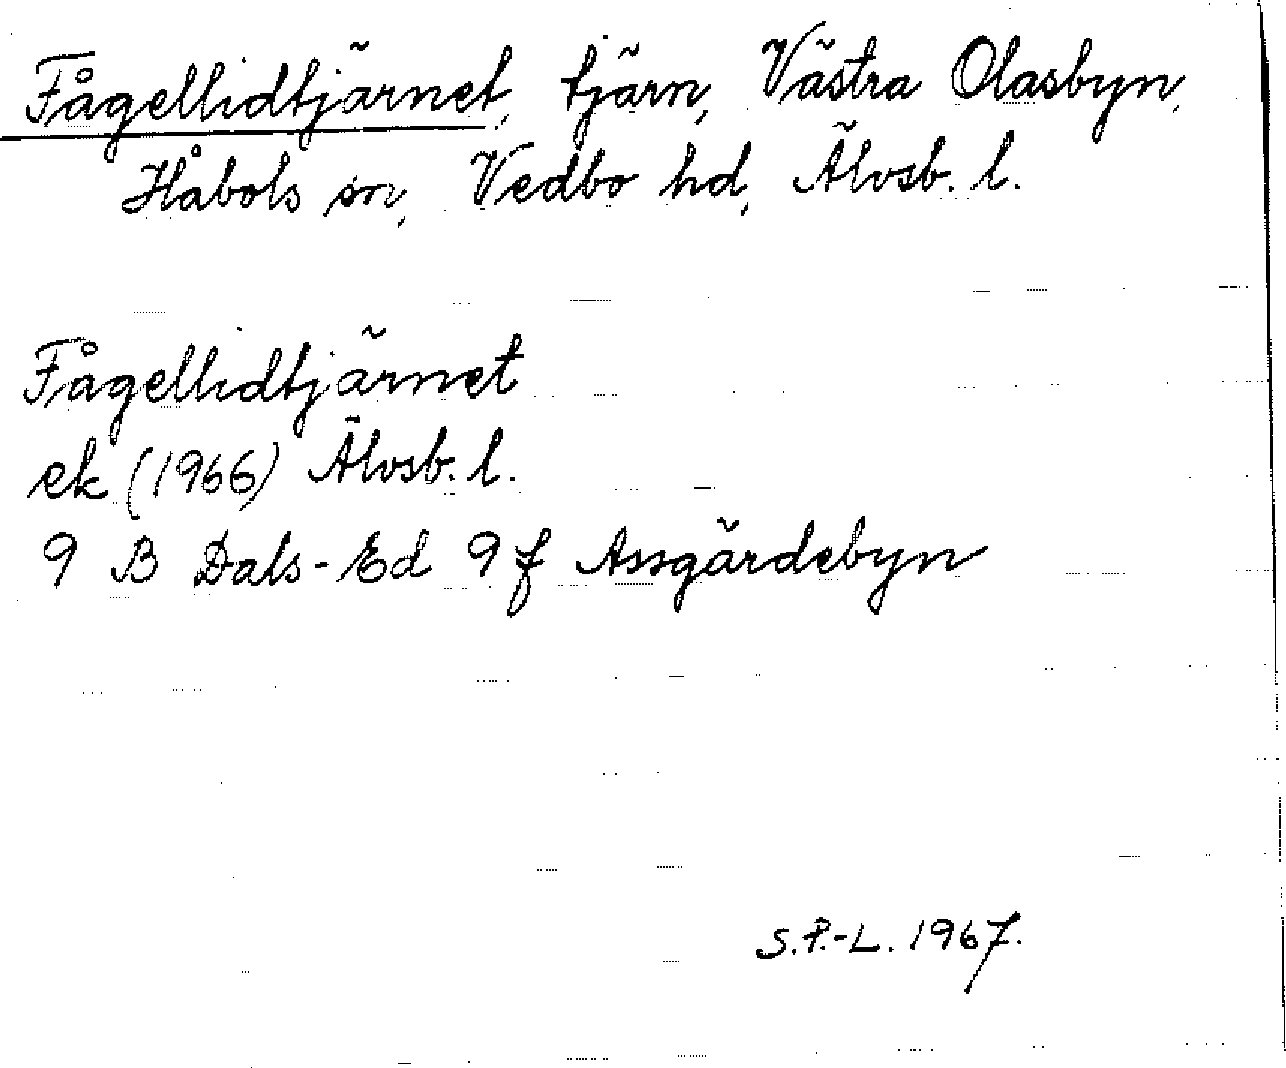 Fågellidtjärnet, tjärn, Västra Olasbyn,
Håbols sn, Vedbo hd, Älvsb. l.
Fågellidtjärnet
ek (1966) Älvsb. l.
9 B Dals-Ed 9 f Assgärdebyn
S.P.-L. 1967.